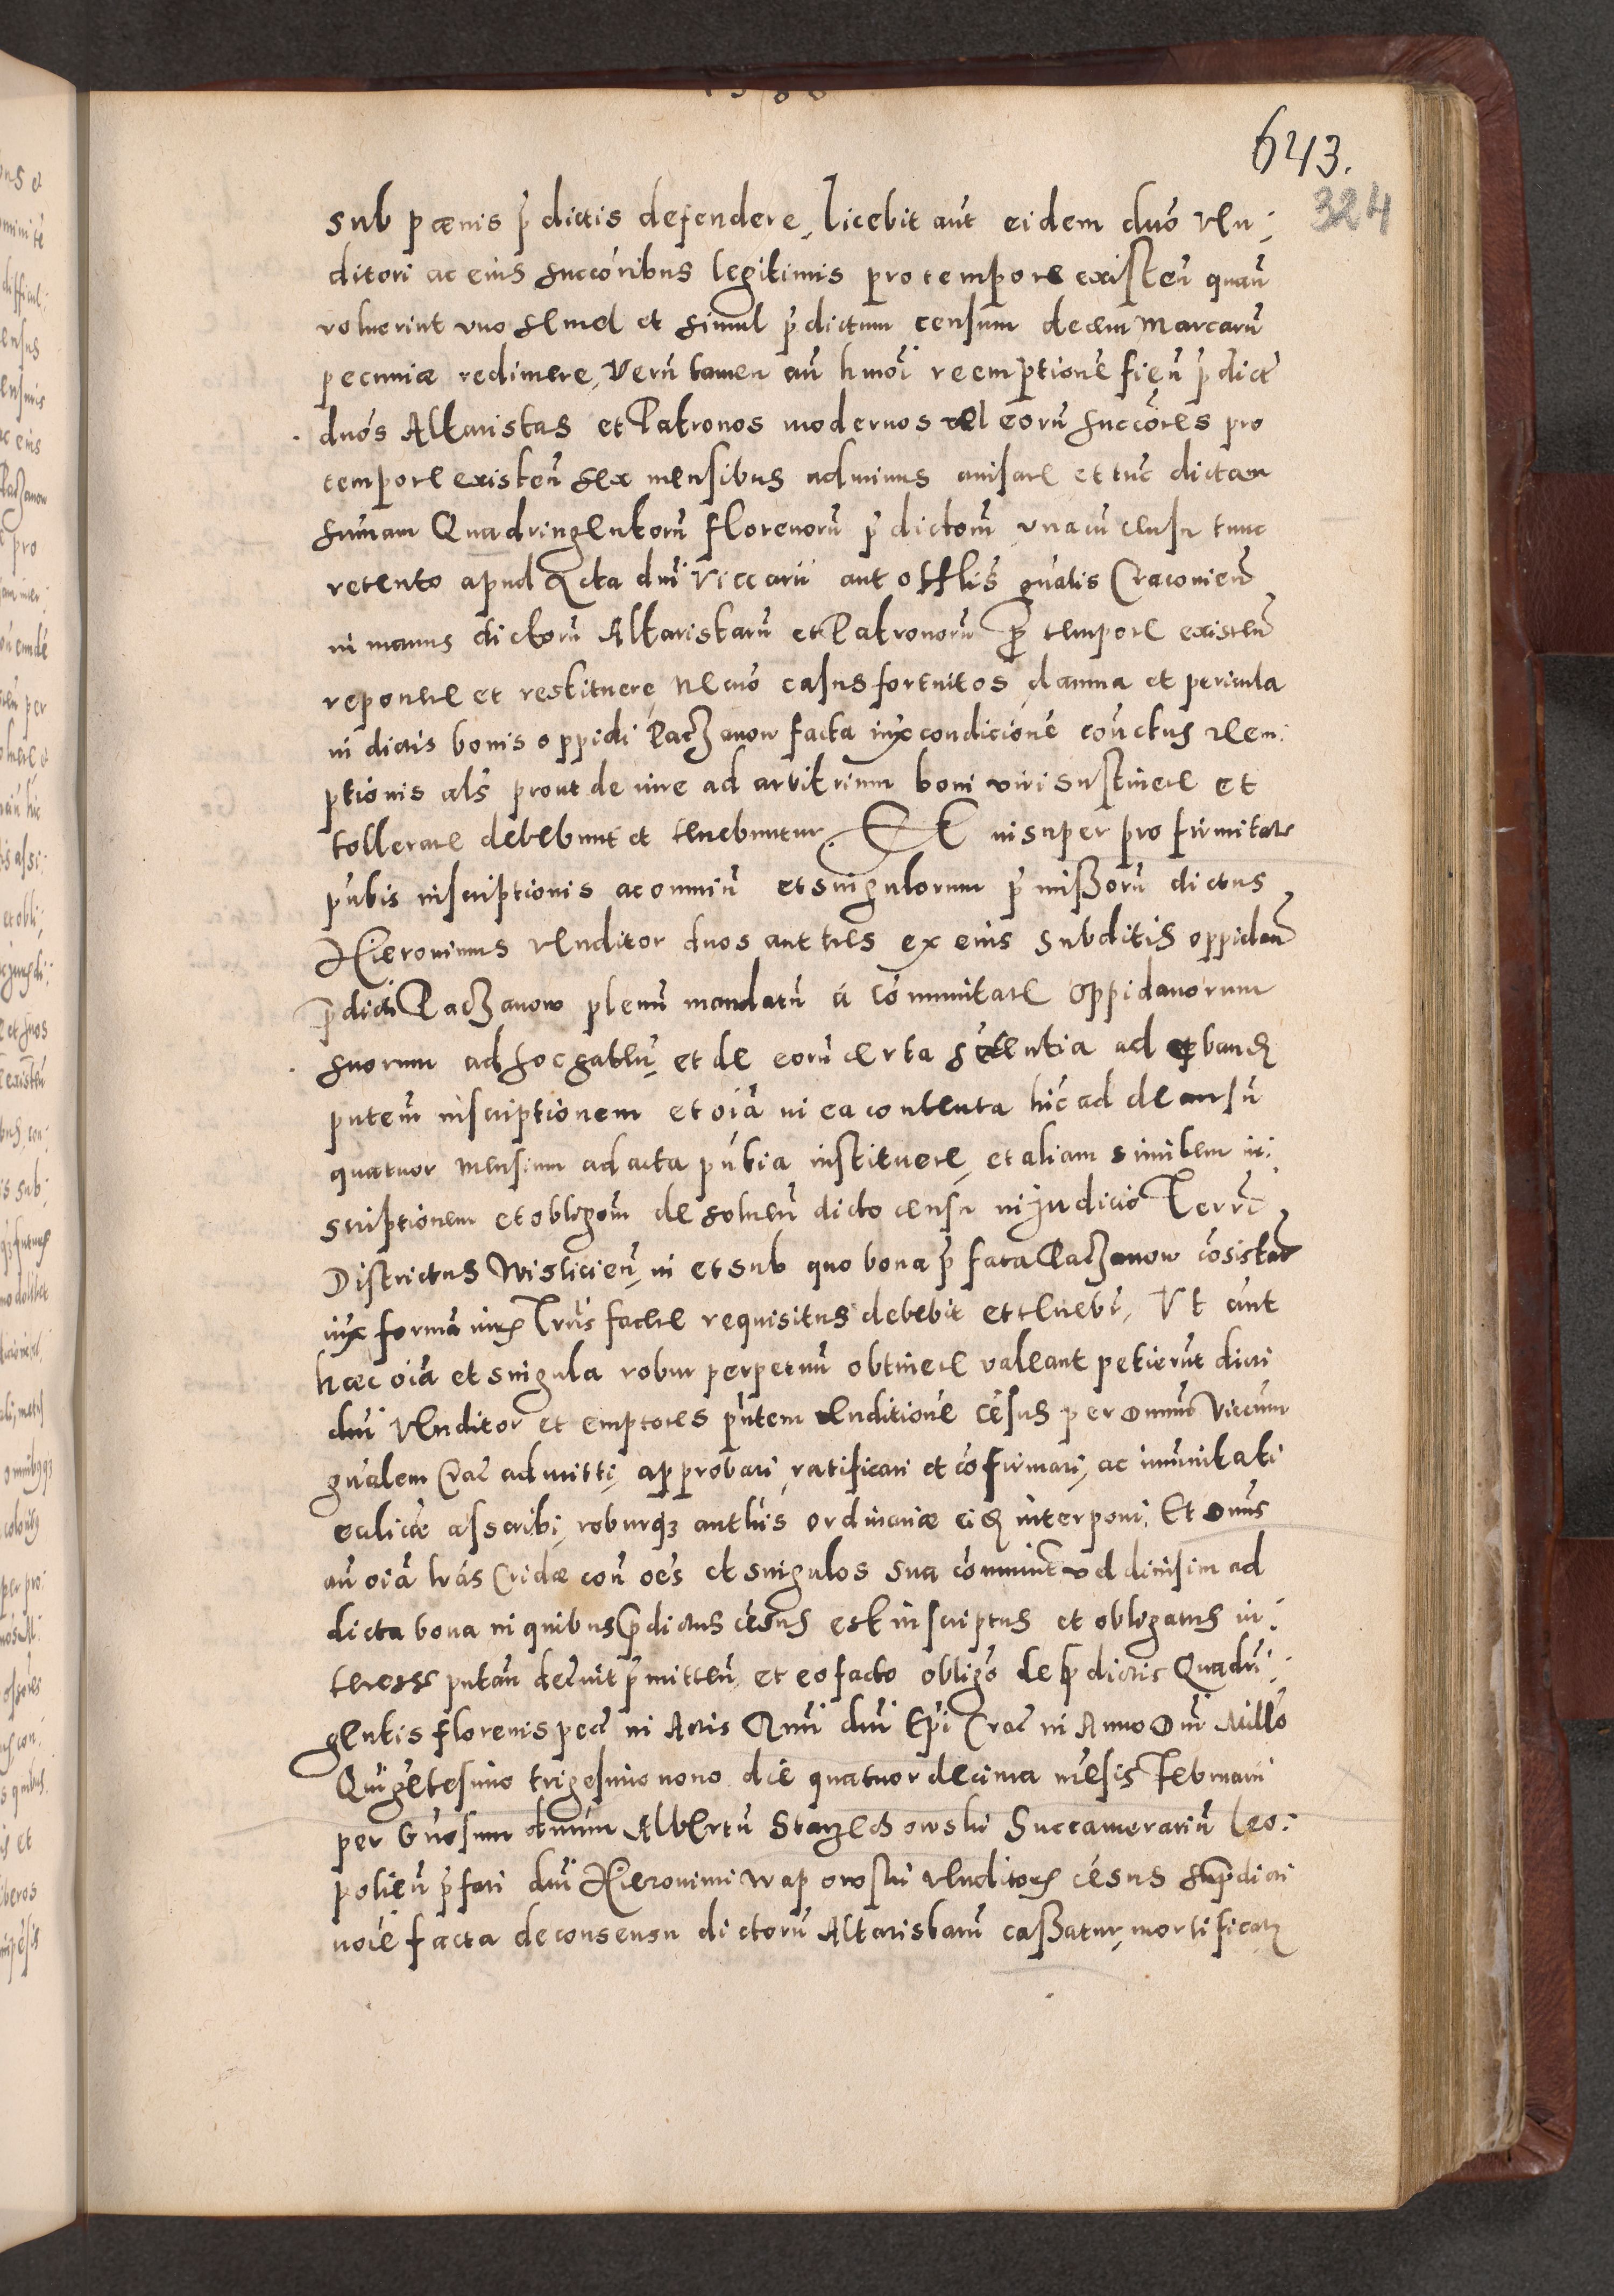 643.
324
sub pænis p̃dictis defendere, licebit aũt eidem dño ven:
ditori ac eius succõribus legitimis pro tempore existeñ quañ
voluerint uno semel et simul p̃dictum censum decem Marcarũ
pecuniæ redimere, Verũ tamen añ hm̃oi reemptionẽ fieñ p̃dict
dños Altaristas et Patronos modernos vel eorũ succõres pro
tempore existeñ sex mensibus adminus avisare et tuc dictam
sum̃am Quadringentorũ florenorũ p̃dictorũ unacũ censu tunc
retento apud Acta dñi Viccarii aut offlis gñalis Cracovieñ
in manus dictorũ Altaristarũ et Patronorũ p̃ tempore existeñ
reponere et restituere, necnõ casus fortuitos, damna et pericula
in dictis bonis oppidi Paczanow facta iux condicionẽ coñctus reem:
ptionis als̃ prout de iure ad arbitrium boni viri sustinere et
tollerare debebunt et tenebuntur. Et insuper pro firmitate
pñtis inscriptionis ac omniũ et singulorum p̃missorũ dictus
Hieronimus venditor duos aut tres ex eius subditis oppidañ
p̃dicti Paczanow plenũ mandatũ á cõmunitate oppidanorum
suorum ad hoc habeñ, et de eorũ certa scientia ad  
pñtem inscriptionem et oĩa in ea contenta hic ad decursũ
quatuor mensium ad acta pñtia instituere, et aliam similem in:
scriptionem et obligõm de solveñ dicto censu in Judicio Terr̃
Districtus Wislicieñ, in et sub quo bona p̃fata Paczanow cõsistunt
iux formã iur Trr̃is facere requisitus debebit et tenebr̃. Ut aũt
hæc oĩa et singula robur perpetuũ obtinere valeant petierũt dicti
dñi Venditor et emptores pñtem venditionẽ cẽsus per Dnum Viccum
gñalem Crac̃ admitti, approbari, ratificari et cõfirmari, ac imunitati
ecclicæ asscribi, roburq3 authis ordinariæ eid interponi, Et Dnus
añ oĩa lras Cridæ coñ oẽs et singulos sua cõmuniter vel divisim ad
dicta bona in quibus p̃dictus cẽsus est inscriptus et obligatus in:
teresse putañ decrevit p̃mitteñ, et eo facto obligõ de p̃dictis Quadri:
gentis florenis pec̃ in Actis Rmi dñi Epĩ Crac̃ in Anno Dñi Millõ
Quigẽtesimo trigesimo nono die quatuordecima mẽsis Februarii
per Gñosum dñum Albertũ Starzechowski Succamerariũ Leo:
polieñ p̃fati dñi Hieronimi Wapowski venditoris cẽsus sup̃dicti
noĩe facta de consensu dictorũ Altaristarũ cassatur, mortificatur